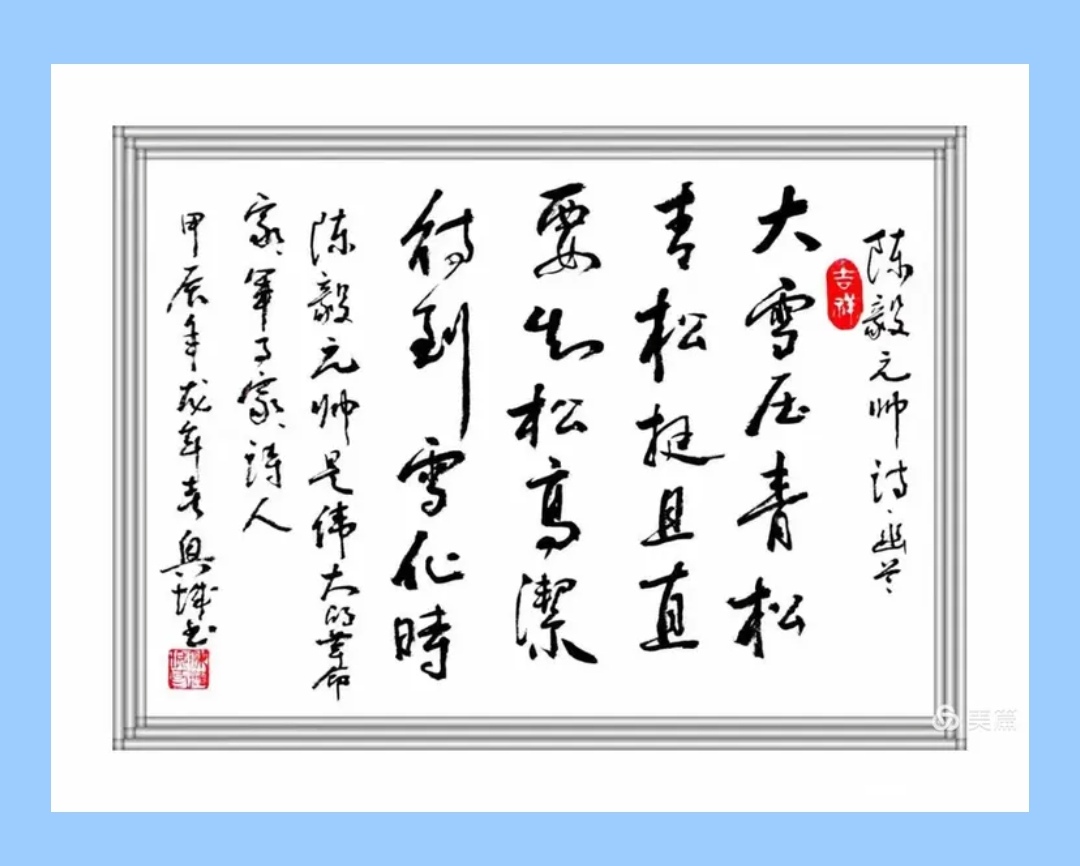 陈毅元帅诗、幽兰
吉祥
大雪压青松
青松挺且直
要知松高潔
待到雪化時
陈毅元帅是伟大的革命
家、軍事家、詩人
甲辰年龙年
美篇